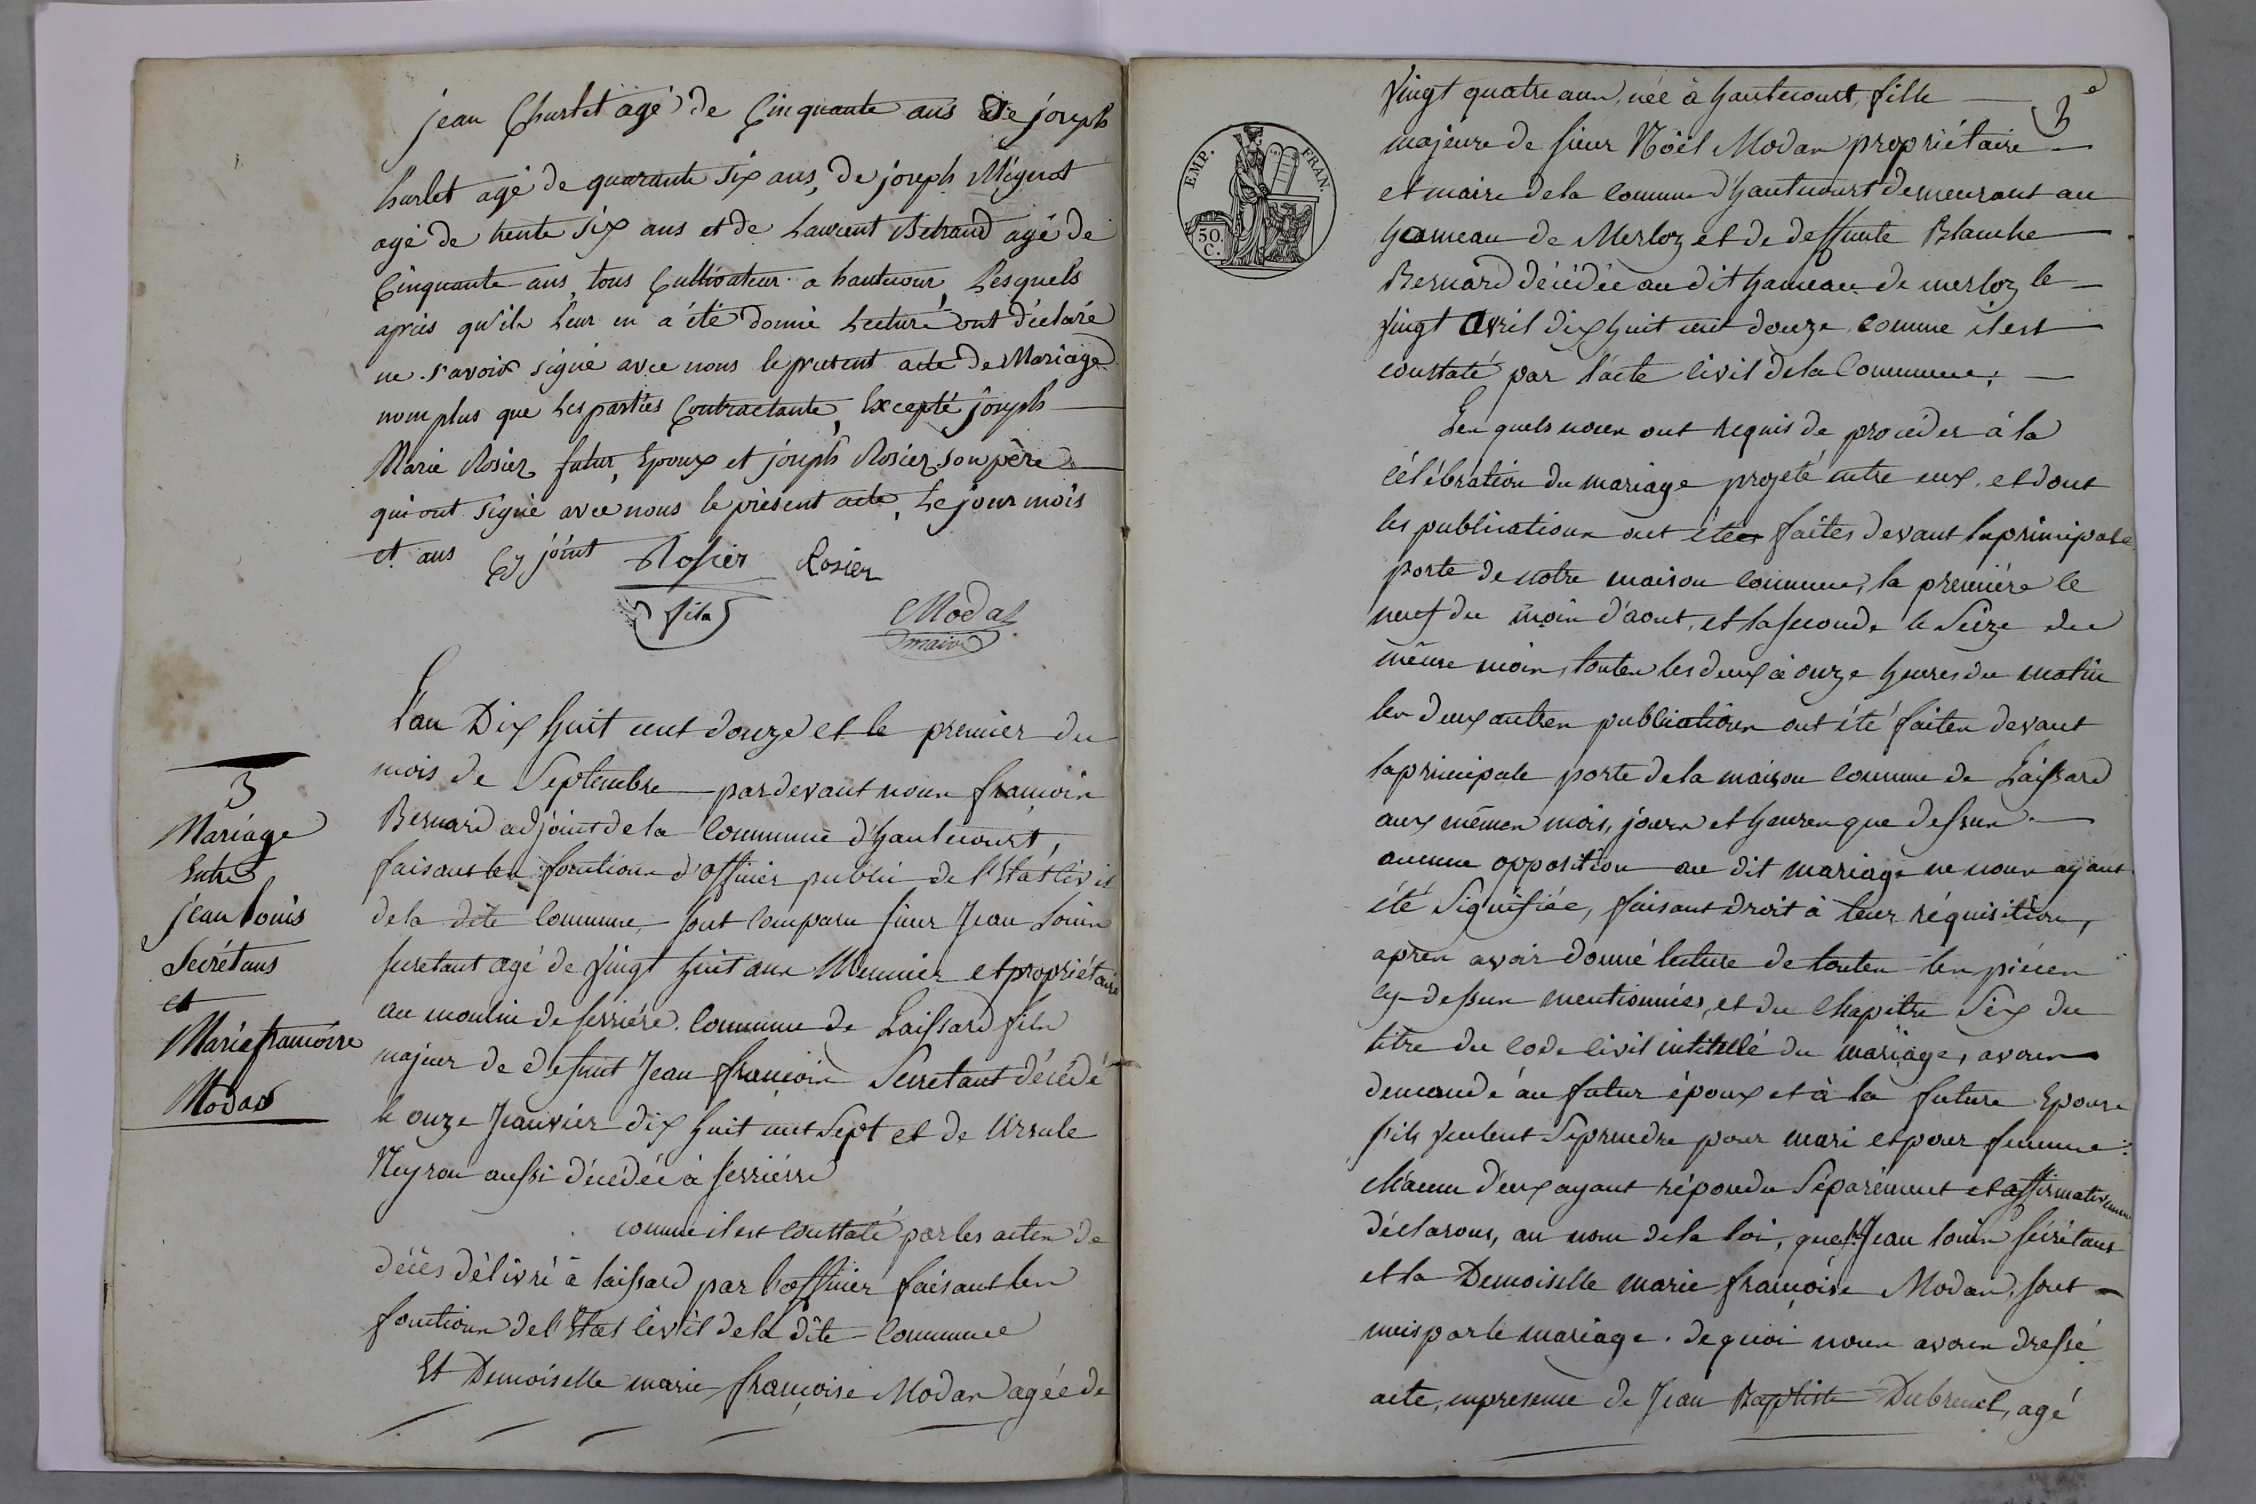 jean Churlet agé de Cinquante ans De joseph
hurlet agé de quarante six ans, de joseph Migerot
agé de trente six ans et de Laurent Betrand agé de
Cinquante ans, tous Cultivateur a hautecour, Lesquels
après qu'il Leur en a été donné Lecture ont déclaré
ne savoir signé avec nous le présent acte de Mariage
nom plus que Les parties Contractante, Excepté joseph
Marie Rosier futur, Epoux et joseph Rosier son père
qui ont signé avec nous le présent acte, Le jour mois
et ans Cy joint Rosier Rosier
fils Modas
maire
L'an Dix huit cent douze et le premier du
mois de Septembre pardevant nous françois
Bernard adjoint de la Commune d'hautecourt,
faisant les fonctions d'officier public de l'Etat civil
de la dite Commune, sont comparu sieur Jean Louis
secretant agé de vingt huit ans Meunier et propriétaire
au moulin de serriére commune de Laissard fils
majeur de defunt Jean françois Secretant décédé
le onze Jeanvier dix huit cent sept et de Ursule
Neyron aussi décédée à serriérre
comme il est constaté par les actes de
décès délivré à laissard par l'officier faisant les
fonctions de l'Etat civil de la dite Commune
Et Demoiselle marie françoise Modas agée de
3
Mariage
Entre
jean Louis
Secrétans
et
Marie francoise
Modas
3e
EMP. FRAN.
50.
C.
vingt quatre ans, née à hautecourt, fille
majeure de sieur Noël Modas propriétaire
et maire de la commune d'hautecourt demeurant au
hameau de Merloz et de deffunte Blanche
Bernard décédée au dit hameau de merloz le
vingt avril dix huit cent douze comme il est
constaté par l'acte civil de la Commune;
Les quels nous ont requis de procéder à la
célébration du mariage projeté entre eux, et dont
les publications ont été faites devant la principale
porte de notre maison commune, la premiére le
neuf du mois d'aout, et la seconde le Seize du
même mois, toutes les deux à onze heures du matin
les deux autres publications ont été faites devant
la principale porte de la maison commune de Laissard
aux mêmes mois, jours et heures que dessus.
aucune opposition au dit mariage ne nous ayant
été Signifiée, faisant droit à leur réquisition,
après avoir donné lecture de toutes les piéces
cy-dessus mentionnées, et du chapitre Six du
titre du code civil intitullé du mariage, avons
demandé au futur époux et à la future Epouse
s'ils veulent se prendre pour mari et pour femme:
chacun d'eux ayant répondu Séparément et affirmativement
déclarons, au nom de la loi, que Sr. Jean louis secrétant
et la Demoiselle marie françoise Modas, sont
unis par le mariage. de quoi nous avons dressé
acte, en presence de Jean Baptiste Dubreuel, agé